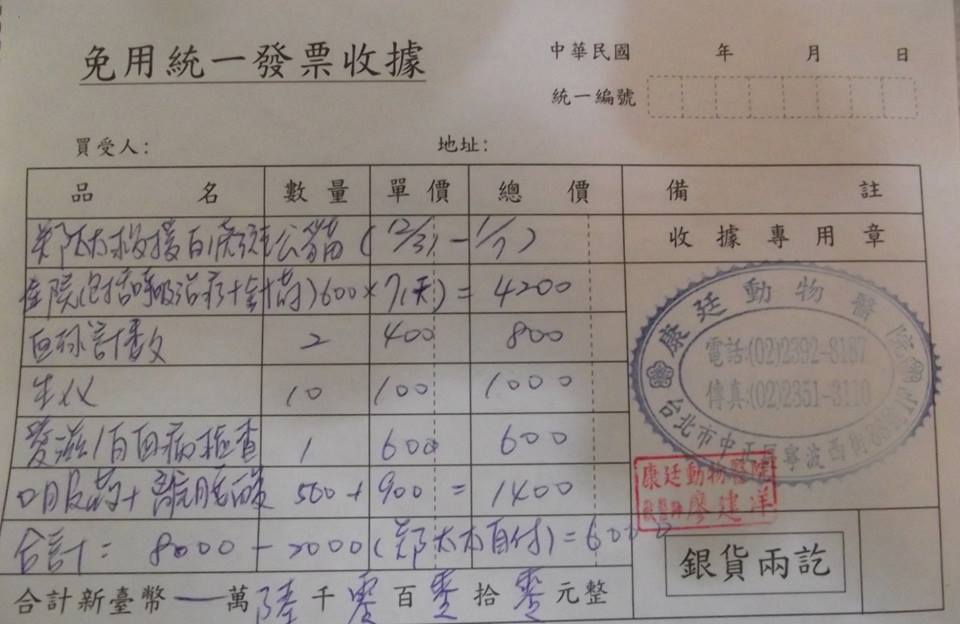 免用統一發票收據
中華民國 年 月 日
統一編號
買受人: 地址:
品名 數量 單價 總價 備註
鄭太太救援白底斑公貓 (12/31-1/7)
收據專用章
住院(包括呼吸治療+針藥) 600×7(天) = 4200
血球計數 2 400 800
生化 10 100 1000
愛滋/白血病檢查 1 600 600
口服藥+離胺酸 500+900 = 1400
合計: 8000-2000(鄭太太自付) = 6000
合計新臺幣 一 萬 陸 千 零 百 零 拾 零 元整
銀貨兩訖
康廷動物醫院
電話:(02)2392-8187
傳真:(02)2351-3110
台北市中正區寧波西街
康廷動物醫院
廖建洋